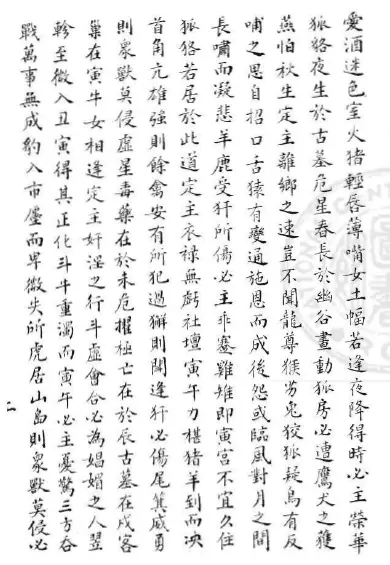 愛酒迷色室火猪輕唇薄嘴女土蝠若逢夜降得時必主榮華
狐狢夜生於古墓危星春長於幽谷晝動狐房必遭鷹犬之獲
燕怕秋生定主離鄉之速豈不聞龍尊猴劣兎狡狐疑烏有反
哺之思自招口舌猿有變通施恩而成後怨或臨風對月之間
長嘯而凝悲羊鹿受犴所傷必主非蹇雞雉即寅宮不宜久住
狐狢若居於此道定主衣祿無虧社壇寅午力椹猪羊到而泱
首角亢雄強則餘禽安有所犯遇獬則鬪逢犴必傷尾箕威勇
則衆獸莫侵虛星毒藥在於未危擢極亡在於辰古墓在戍客
巢在寅牛女相逢定主奸淫之行斗虛會合必為娼媚之人翌
軫至微入丑寅得其正化斗牛重濁而寅午必主憂驚三方吞
戰萬事無成豹入市廛而卑微失所虎居山崗則衆獸莫侵必
二